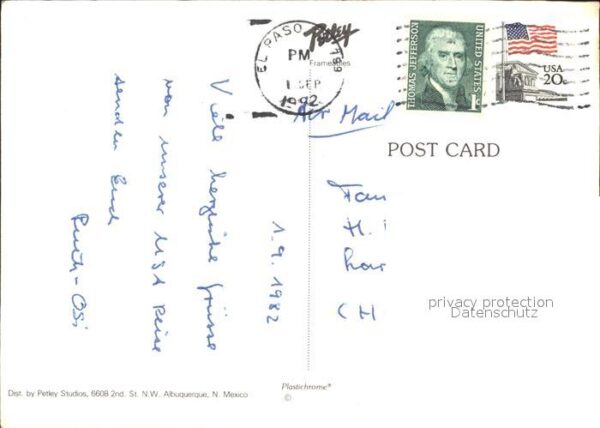 1.9.1982
Viele herzliche Grüsse
von unserer USA Reise
senden Euch
Ruth - Osi
Petley
EL PASO
799
PM
1 SEP
1982
Air Mail
THOMAS JEFFERSON
UNITED STATES
1c
USA
20c
POST CARD
Fam
H.
CH
privacy protection
Datenschutz
Dist. by Petley Studios, 6608 2nd. St. N.W. Albuquerque, N. Mexico
Plastichrome®
©